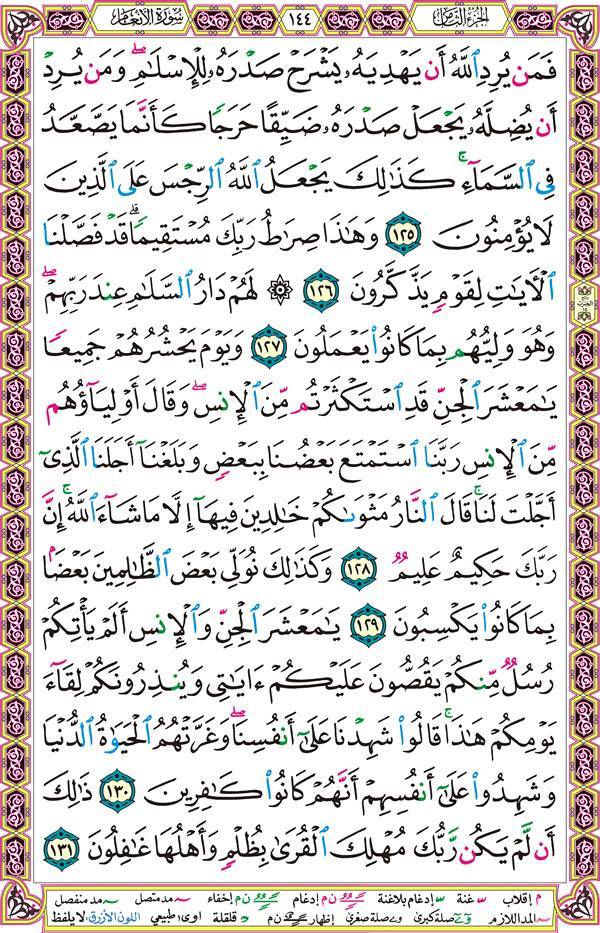 الجزء الثامن ١٤٤ سورة الأنعام
فَمَن يُرِدِ ٱللَّهُ أَن يَهْدِيَهُۥ يَشْرَحْ صَدْرَهُۥ لِلْإِسْلَٰمِ ۖ وَمَن يُرِدْ
أَن يُضِلَّهُۥ يَجْعَلْ صَدْرَهُۥ ضَيِّقًا حَرَجًا كَأَنَّمَا يَصَّعَّدُ
فِى ٱلسَّمَآءِ ۚ كَذَٰلِكَ يَجْعَلُ ٱللَّهُ ٱلرِّجْسَ عَلَى ٱلَّذِينَ
لَا يُؤْمِنُونَ ١٢٥ وَهَٰذَا صِرَٰطُ رَبِّكَ مُسْتَقِيمًا ۗ قَدْ فَصَّلْنَا
ٱلْءَايَٰتِ لِقَوْمٍ يَذَّكَّرُونَ ١٢٦ ۞ لَهُمْ دَارُ ٱلسَّلَٰمِ عِندَ رَبِّهِمْ ۖ
وَهُوَ وَلِيُّهُم بِمَا كَانُوا۟ يَعْمَلُونَ ١٢٧ وَيَوْمَ يَحْشُرُهُمْ جَمِيعًا
يَٰمَعْشَرَ ٱلْجِنِّ قَدِ ٱسْتَكْثَرْتُم مِّنَ ٱلْإِنسِ ۖ وَقَالَ أَوْلِيَآؤُهُم
مِّنَ ٱلْإِنسِ رَبَّنَا ٱسْتَمْتَعَ بَعْضُنَا بِبَعْضٍ وَبَلَغْنَآ أَجَلَنَا ٱلَّذِىٓ
أَجَّلْتَ لَنَا ۚ قَالَ ٱلنَّارُ مَثْوَىٰكُمْ خَٰلِدِينَ فِيهَآ إِلَّا مَا شَآءَ ٱللَّهُ ۗ إِنَّ
رَبَّكَ حَكِيمٌ عَلِيمٌ ١٢٨ وَكَذَٰلِكَ نُوَلِّى بَعْضَ ٱلظَّٰلِمِينَ بَعْضًۢا
بِمَا كَانُوا۟ يَكْسِبُونَ ١٢٩ يَٰمَعْشَرَ ٱلْجِنِّ وَٱلْإِنسِ أَلَمْ يَأْتِكُمْ
رُسُلٌ مِّنكُمْ يَقُصُّونَ عَلَيْكُمْ ءَايَٰتِى وَيُنذِرُونَكُمْ لِقَآءَ
يَوْمِكُمْ هَٰذَا ۚ قَالُوا۟ شَهِدْنَا عَلَىٰٓ أَنفُسِنَا ۖ وَغَرَّتْهُمُ ٱلْحَيَوٰةُ ٱلدُّنْيَا
وَشَهِدُوا۟ عَلَىٰٓ أَنفُسِهِمْ أَنَّهُمْ كَانُوا۟ كَٰفِرِينَ ١٣٠ ذَٰلِكَ
أَن لَّمْ يَكُن رَّبُّكَ مُهْلِكَ ٱلْقُرَىٰ بِظُلْمٍ وَأَهْلُهَا غَٰفِلُونَ ١٣١
م إقلاب غنة إدغام بلاغنة ن م إدغام ن م إخفاء مد متصل مد منفصل
المد اللازم صلة كبرى صلة صغرى إظهار ن م قلقلة اوى طبيعي اللون الأزرق: لا يلفظ